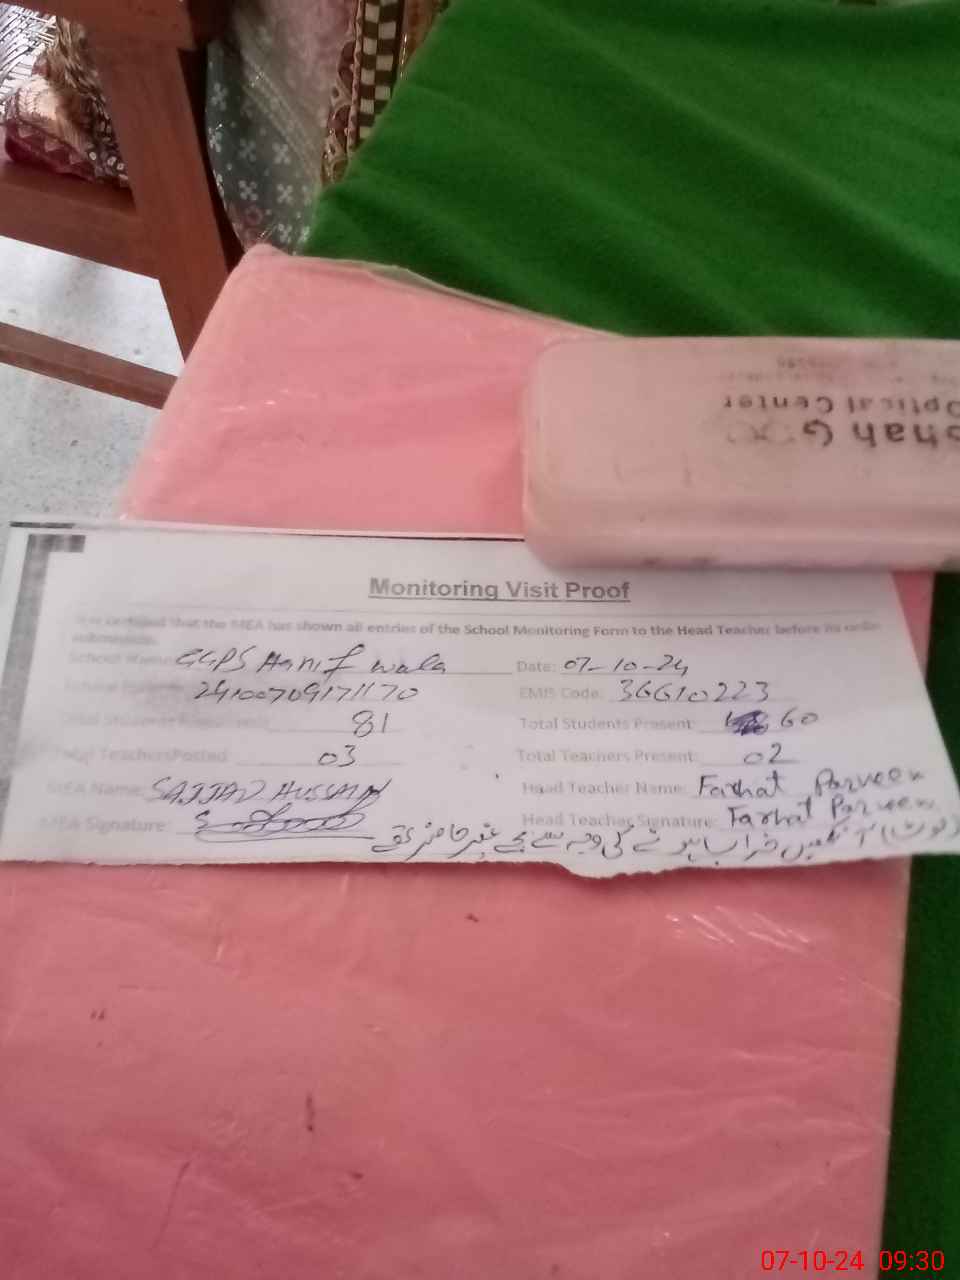 Shah G
Optical Center
Monitoring Visit Proof
certified that the MEA has shown all entries of the School Monitoring Form to the Head Teacher before its
submission.
School Name GGPS Hanif wala Date: 07-10-24
24100709171170 EMIS Code: 36610223
Total Students 81 Total Students Present: 60
Total TeachersPosted: 03 Total Teachers Present: 02
MEA Name: SAJJAD HUSSAIN Head Teacher Name: Farhat Parveen
MEA Signature: Head Teacher Signature: Farhat Parveen
(نوٹ) آنکھیں خراب ہونے کی وجہ سے بچے غیر حاضر تھے
07-10-24 09:30